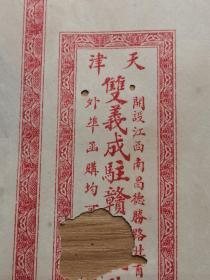 天津
開設江西南昌德勝路廿
雙義成駐贛
外埠函購均